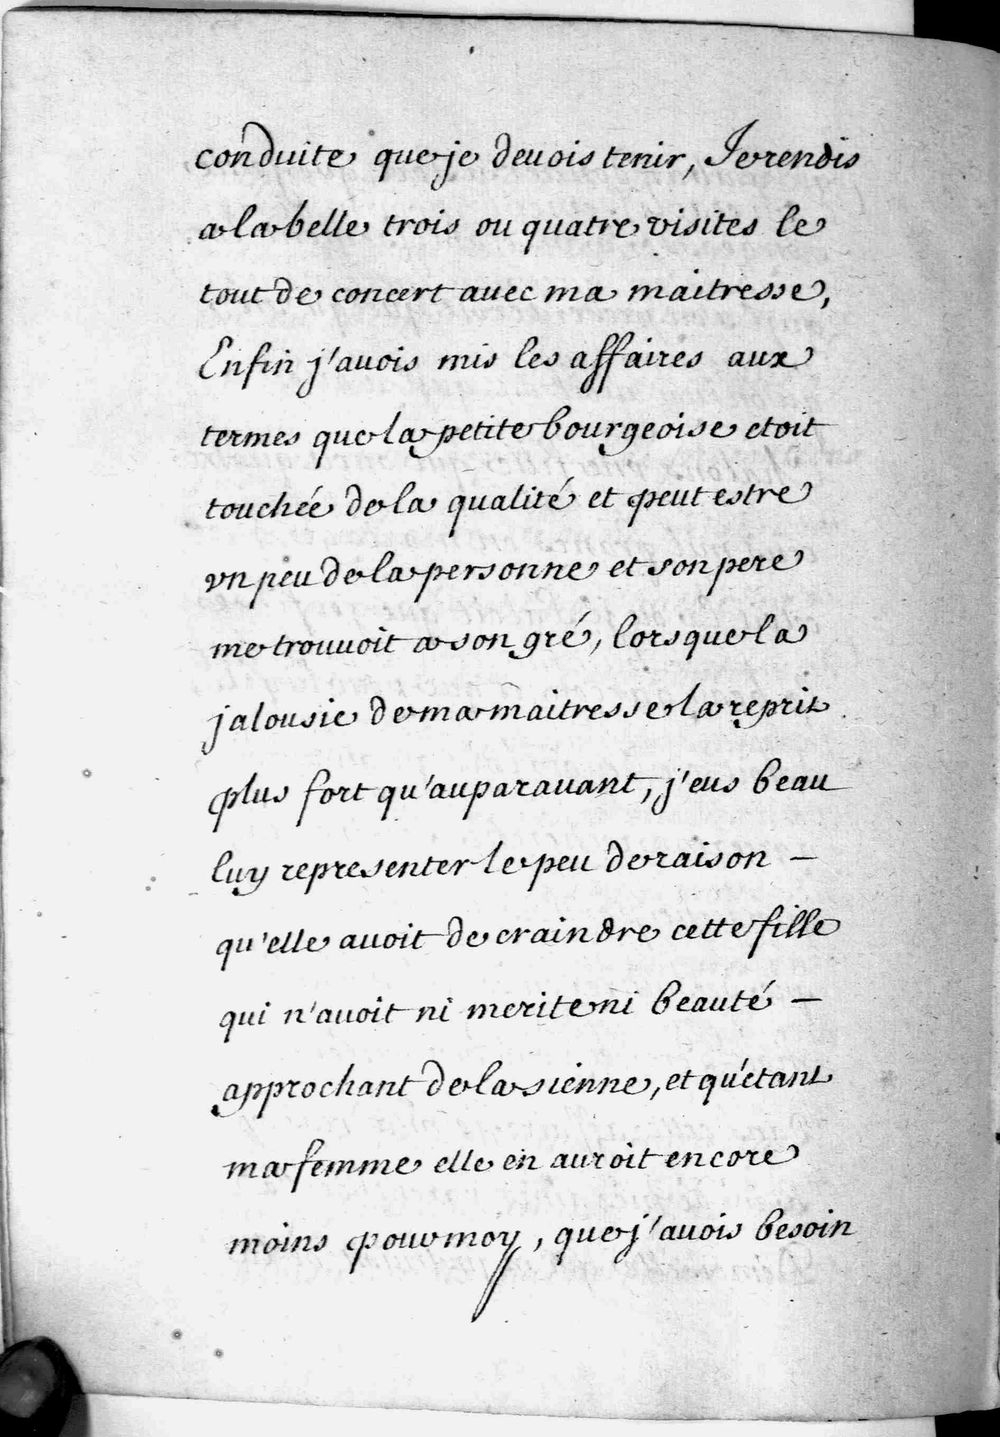 conduite que je deuois tenir, Je rendis
a la belle trois ou quatre visites le
tout de concert auec ma maitresse,
Enfin j'auois mis les affaires aux
termes que la petite bourgeoise etoit
touchée de la qualité et peut estre
vn peu de la personne et son pere
me trouuoit a son gré, lorsque la
jalousie de ma maitresse la reprit
plus fort qu'auparauant, j'eus beau
luy representer le peu de raison –
qu'elle auoit de craindre cette fille
qui n'auoit ni merite ni beauté –
approchant de la sienne, et qu'étant
ma femme elle en auroit encore
moins pour moy, que j'auois besoin